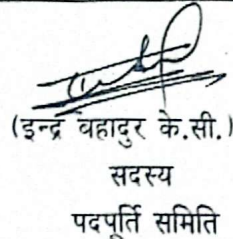 (इन्द्र वहादुर के.सी.)
सदस्य
पदपूर्ति समिति